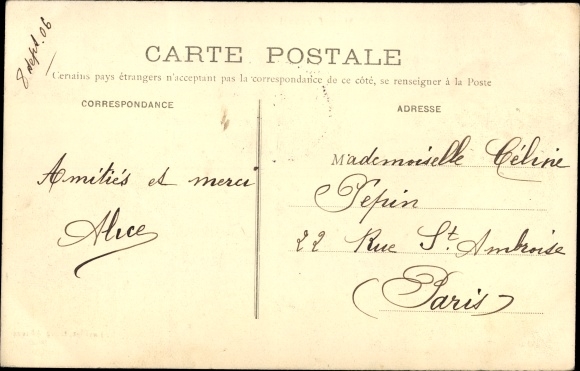 8 sept. 06
CARTE POSTALE
Certains pays étrangers n'acceptant pas la correspondance de ce côté, se renseigner à la Poste
CORRESPONDANCE
Amitiés et merci
Alice
ADRESSE
Mademoiselle Céline
Pépin
22 Rue St. Ambroise
(Paris)